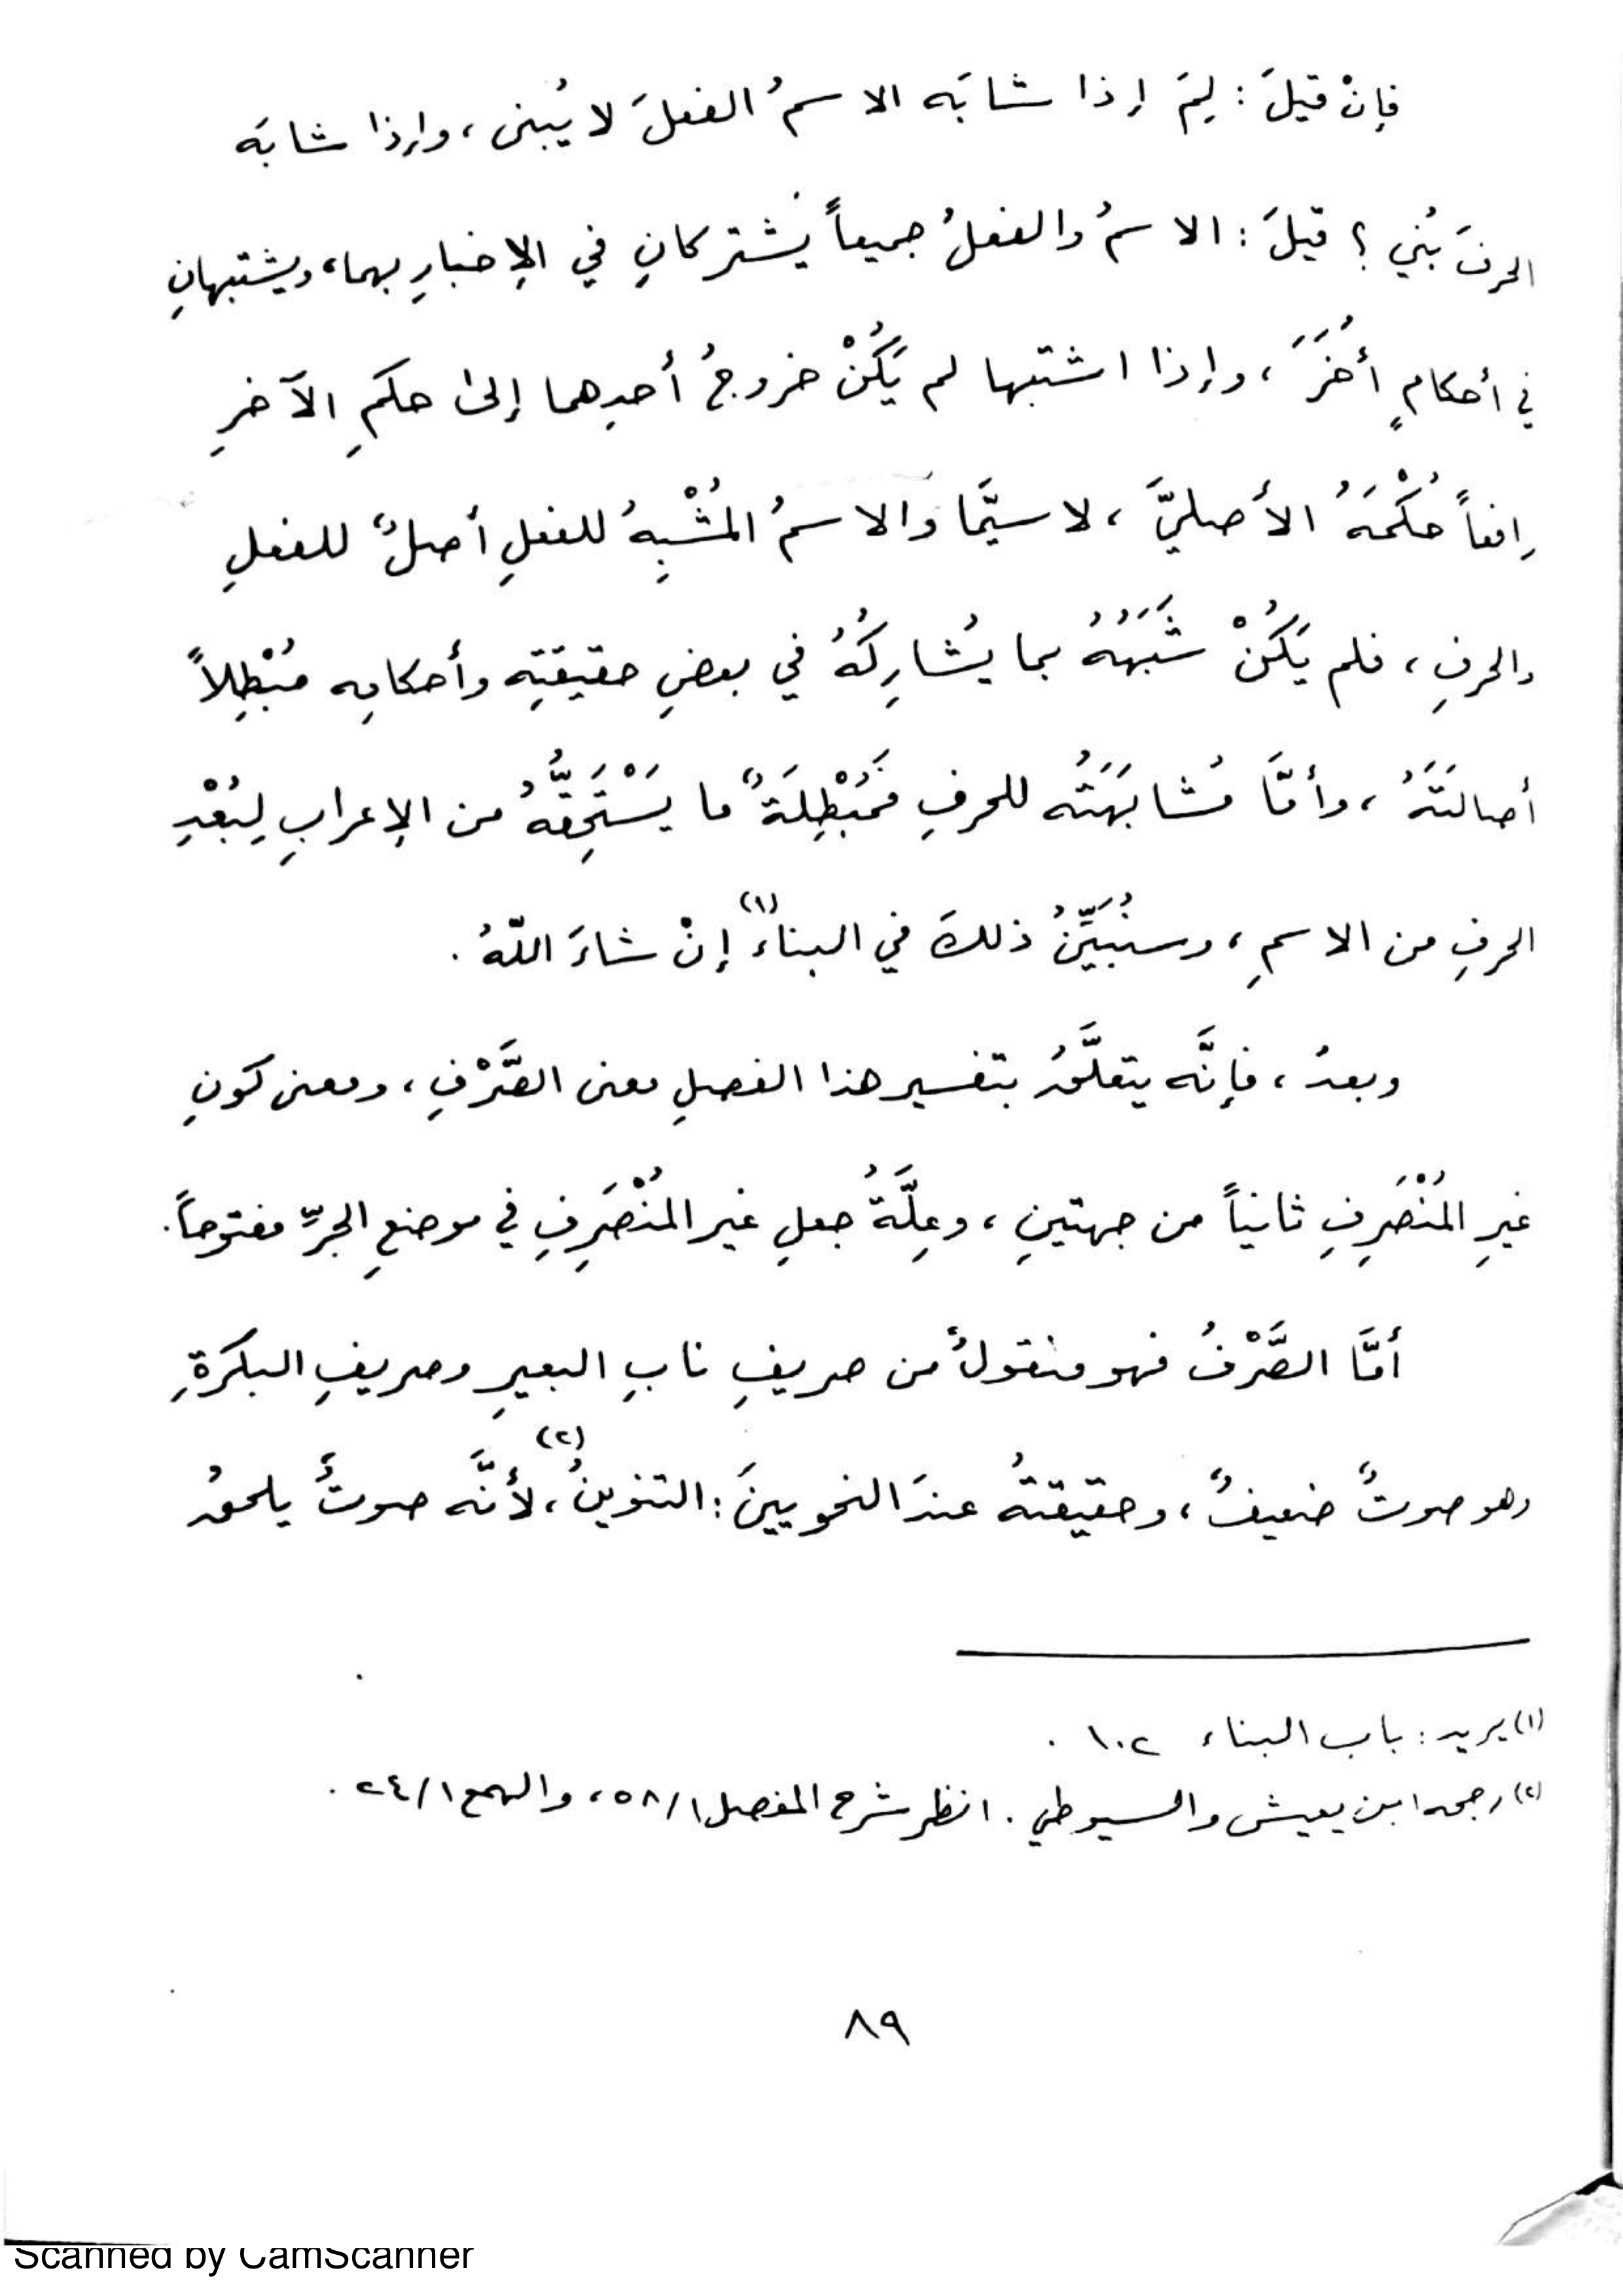 فإنْ قيلَ : لِمَ إذا شابَه الاسمُ الفعلَ لا يُبنى ، وإذا شابَه
الحرفَ بُنِي ؟ قيلَ : الاسمُ والفعلُ جميعاً يَشتركانِ في الإخبارِ بهما ، ويشتبهانِ
في أحكامٍ أُخَرَ ، وإذا اشتبها لم يَكُنْ خروجُ أحدِهما إلى حكمِ الآخرِ
رافعاً حُكْمَهُ الأصليَّ ، لاسيَّما والاسمُ المُشْبِهُ للفعلِ أصلٌ للفعلِ
والحرفِ ، فلم يَكُنْ شَبَهُهُ بما يُشارِكُهُ في بعضِ حقيقتِه وأحكامِه مُبْطِلاً
أصالتَهُ ، وأمَّا مُشابَهَتُه للحرفِ فَمُبْطِلَةٌ ما يَسْتَحِقُّهُ من الإعرابِ لِبُعْدِ
الحرفِ من الاسمِ ، وسنُبَيِّنُ ذلكَ في البناءِ (١) إنْ شاءَ اللّهُ .
وبعدُ ، فإنَّه يتعلَّقُ بتفسير هذا الفصلِ معنى الصَّرْفِ ، ومعنى كونِ
غيرِ المُنْصَرِفِ ثانياً من جهتينِ ، وعِلَّةُ جعلِ غيرِ المُنْصَرِفِ في موضعِ الجرِّ مفتوحاً .
أمَّا الصَّرْفُ فهو منقولٌ من صريفِ نابِ البعيرِ وصريفِ البكرَةِ
وهو صوتٌ ضعيفٌ ، وحقيقتُهُ عندَ النحويينَ : التنوينُ (٢) ، لأنَّه صوتٌ يلحقُ
(١) يريد : باب البناء ١٠٢ .
(٢) رجحه ابن يعيش والسيوطي . انظر شرح المفصل ١/ ٥٨ ، والهمع ١/ ٢٤ .
٨٩
Scanned by CamScanner